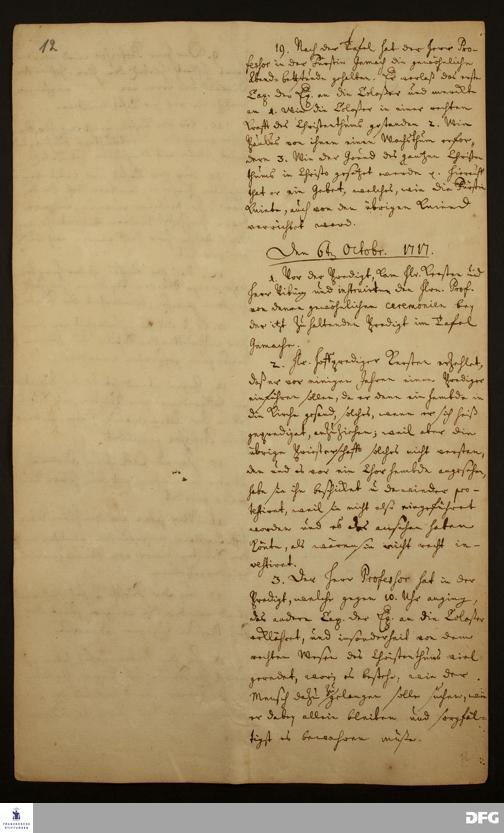 12
19. Nach der Tafel hat der Herr Pro-
fessor in der Fürstin Gemach die gewöhnliche
Abend bethstunde gehalten. Er verlaß das erste
Cap. der Ep. an die Colosser und merckte
an 1. Wie die Colosser in einer rechten
Krafft des Christenthums gestanden 2. Wie
Paulus von ihnen einen Wachsthum erfor-
dere 3. Wie der Grund des gantzen Christen
thums in Christo gesetzet werde p. Hierauff
that er ein Gebet, welches, wie die Fürstin
kniete, auch von den übrigen kniend
verrichtet ward.
Den 6ten Octobr. 1717.
1. Vor der Predigt, kam Hr. Kersten und
Herr und instruirten den Hrn. Prof.
von denen gewöhnlichen ceremonien bey
der itzt zu haltenden Predigt im Tafel
Gemache.
2. Hr. Hoffprediger Kersten erzehlet,
daß er vor einigen Jahren einen Prediger
einführen sollen, da er denn ein hembde in
die Kirche gesand, solches, wenn er sich heiß
geprediget, anzuziehen; weil aber die
übrige Priesterschafft solches nicht verstan-
den und es vor ein Chorhembde angesehen,
habe sie ihn beschicket u dawieder pro-
testiret, weil sie nicht also eingeführet
worden und es das ansehen haben
könte, als wären sie nicht recht in-
vestiret.
3. Der Herr Professor hat in der
Predigt, welche gegen 10. Uhr anging,
das andere Cap. der Ep. an die Colosser
erklähret, und insonderheit von dem
rechten Wesen des Christenthums viel
geredet, worin es bestehe, wie der
Mensch dazu zu gelangen solle suchen, wie
er dabey allein bleiben und sorgfäl-
tigst es bewahren müste.
FRANCKESCHE
STIFTUNGEN
DFG